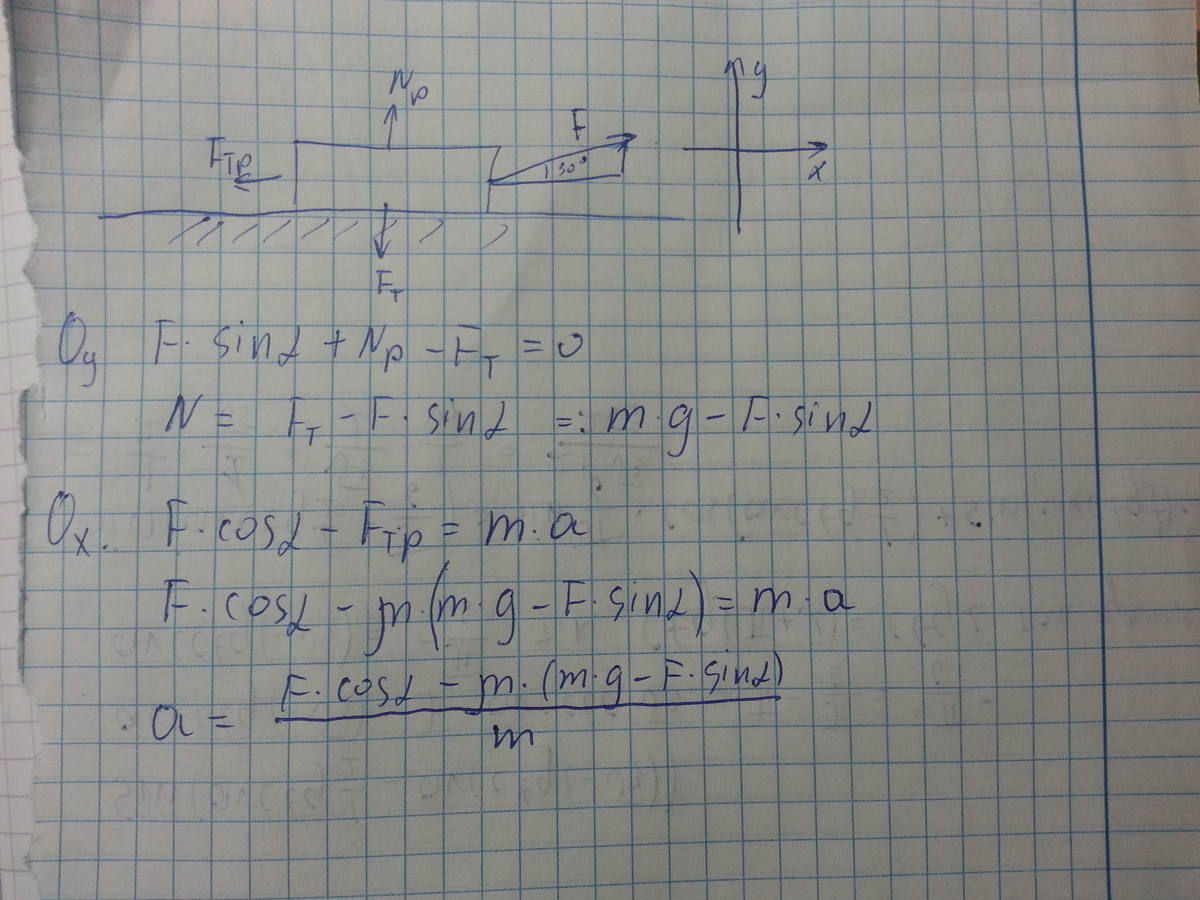 Nр
y
F
Fтр
30°
x
Fт
Oy F · sinα + Nр - Fт = 0
N = Fт - F · sinα = m · g - F · sinα
Ox. F · cosα - Fтр = m · a
F · cosα - μ · (m · g - F · sinα) = m · a
a = F · cosα - μ · (m · g - F · sinα)
m